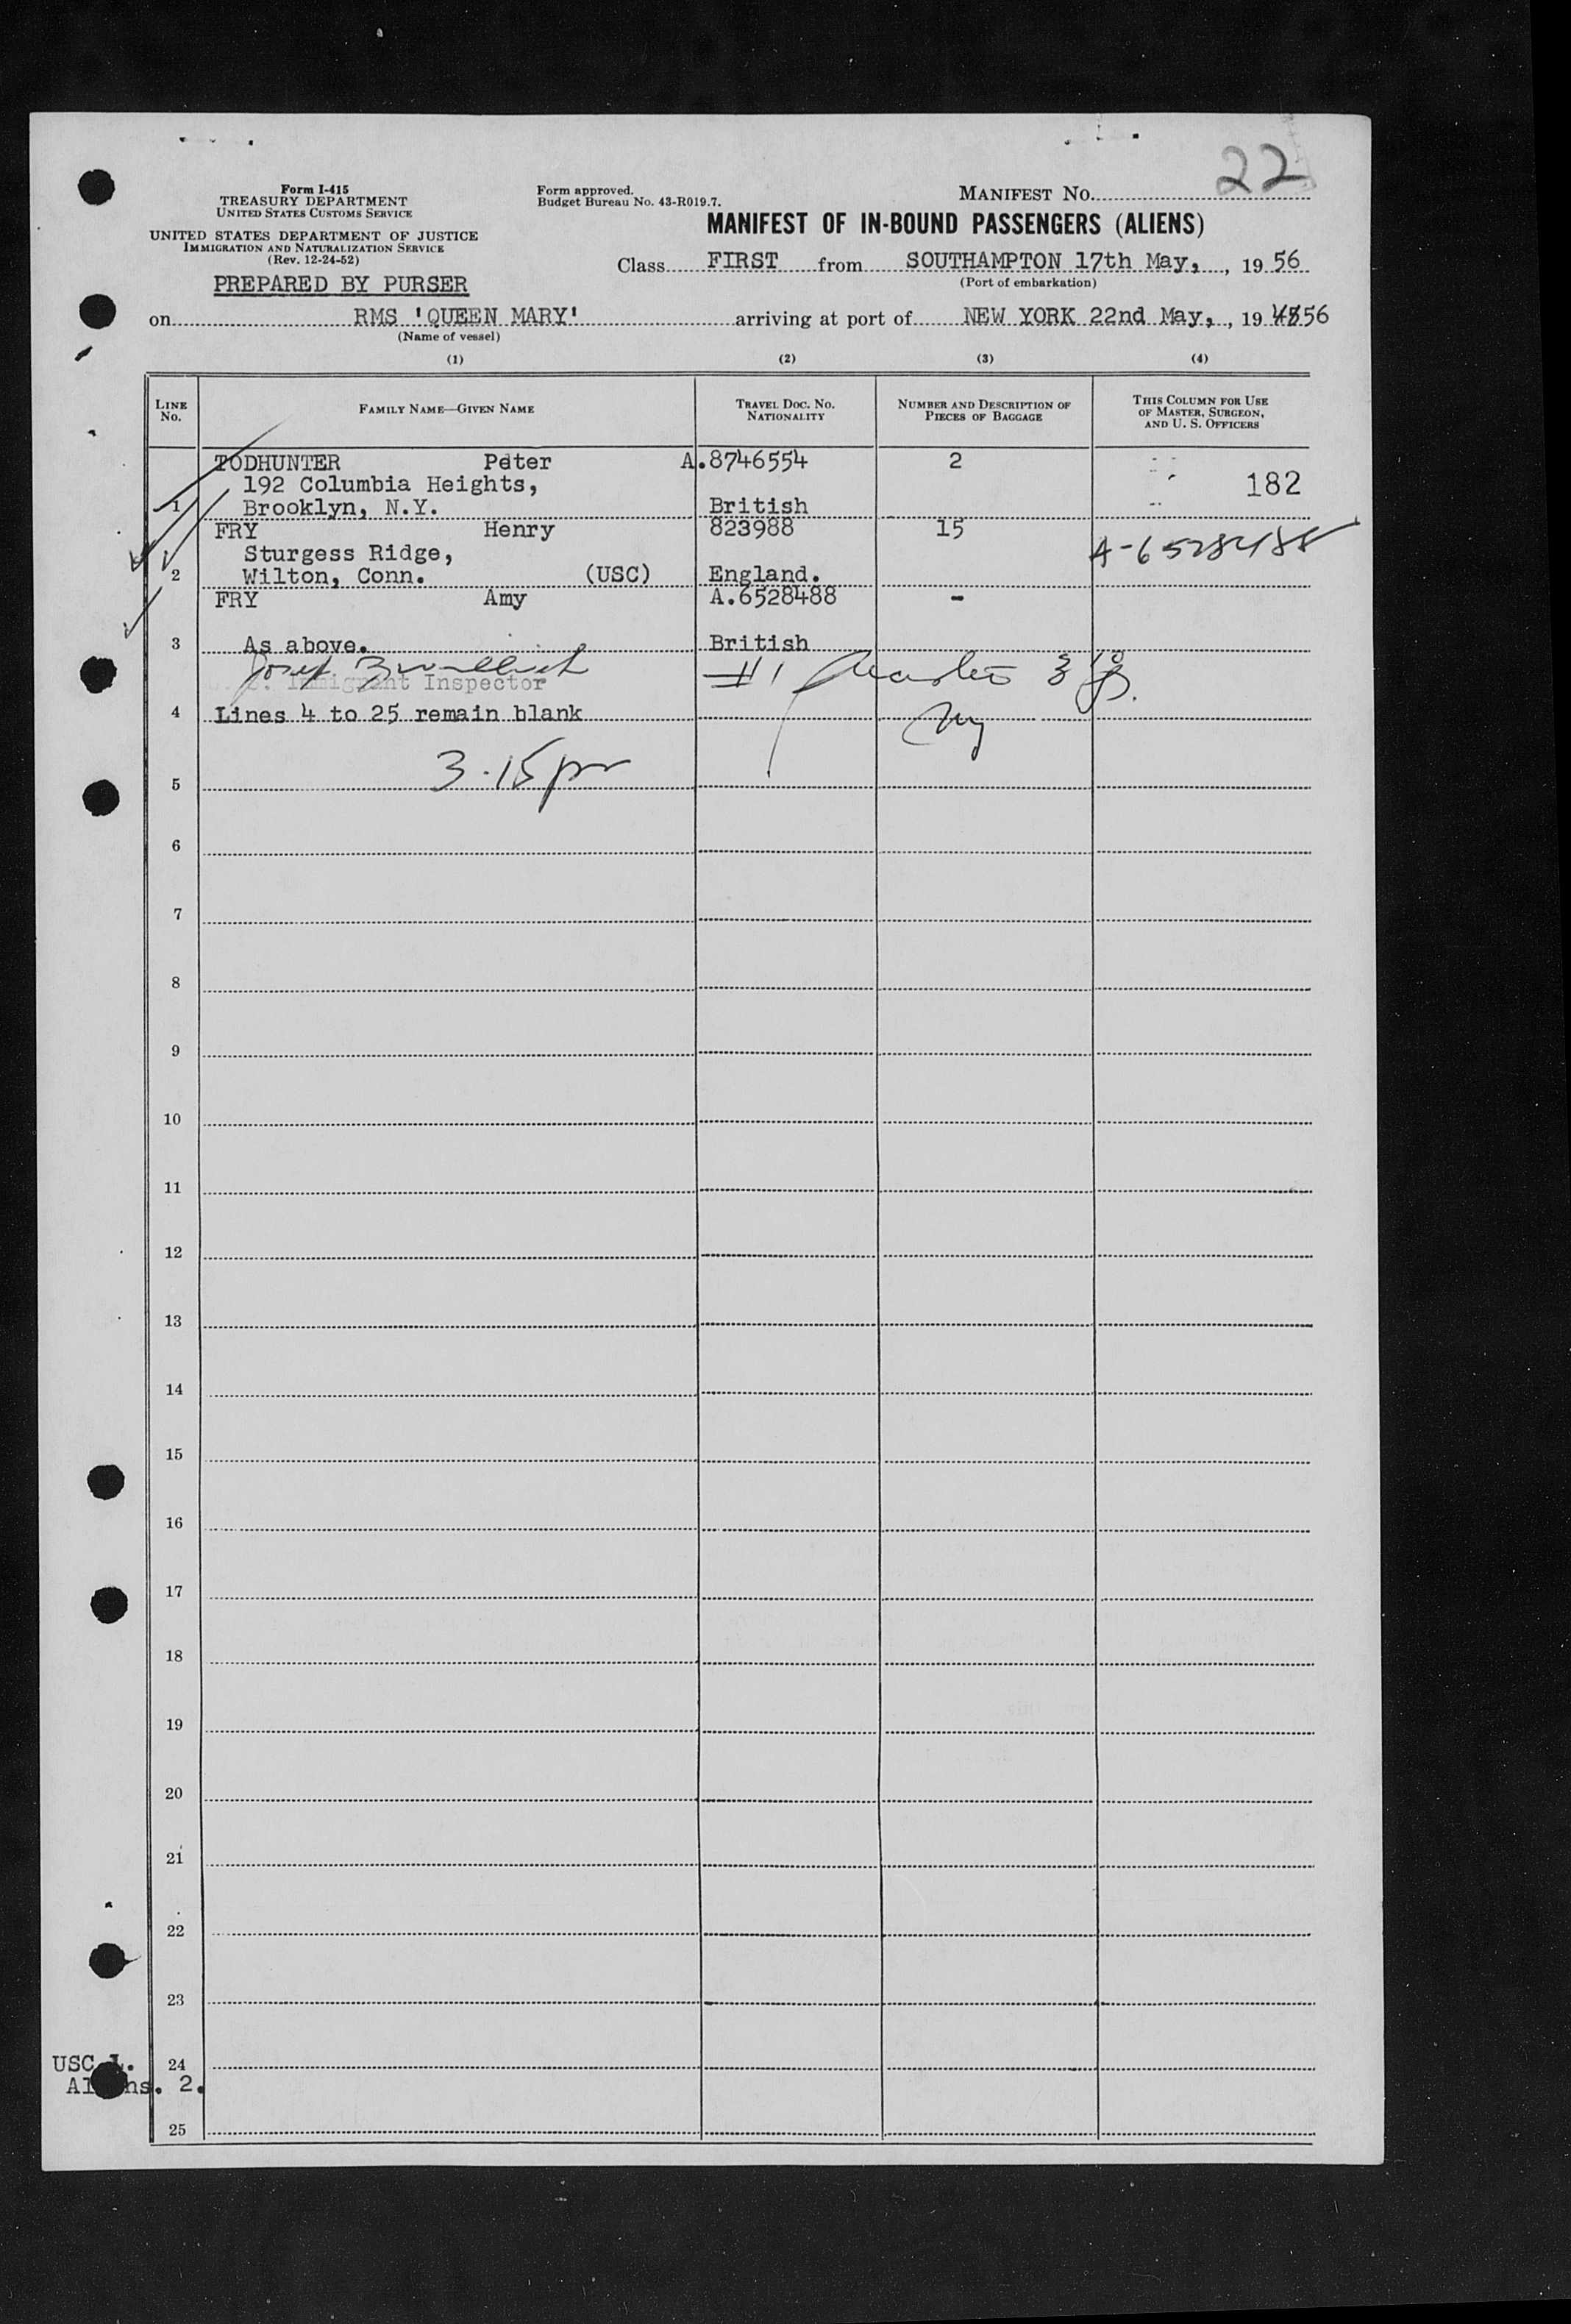 22
Form I-415
TREASURY DEPARTMENT
UNITED STATES CUSTOMS SERVICE
UNITED STATES DEPARTMENT OF JUSTICE
IMMIGRATION AND NATURALIZATION SERVICE
(Rev. 12-24-52)
PREPARED BY PURSER
Form approved.
Budget Bureau No. 43-R019.7.
MANIFEST NO.
MANIFEST OF IN-BOUND PASSENGERS (ALIENS)
Class FIRST from SOUTHAMPTON 17th May, , 19 56
(Port of embarkation)
on RMS 'QUEEN MARY' arriving at port of NEW YORK 22nd May, , 19 56
(Name of vessel)
(1) (2) (3) (4)
LINE No. FAMILY NAME—GIVEN NAME TRAVEL DOC. NO. NATIONALITY NUMBER AND DESCRIPTION OF PIECES OF BAGGAGE THIS COLUMN FOR USE OF MASTER, SURGEON, AND U. S. OFFICERS
TODHUNTER Peter A.8746554 2
192 Columbia Heights, 182
1 Brooklyn, N.Y. British
FRY Henry 823988 15
Sturgess Ridge, A-6528488
2 Wilton, Conn. (USC) England.
FRY Amy A.6528488 -
3 As above. British
Immigrant Inspector #1
4 Lines 4 to 25 remain blank
3.15 pm
5
6
7
8
9
10
11
12
13
14
15
16
17
18
19
20
21
22
23
USC 1. 24
Aliens. 2.
25